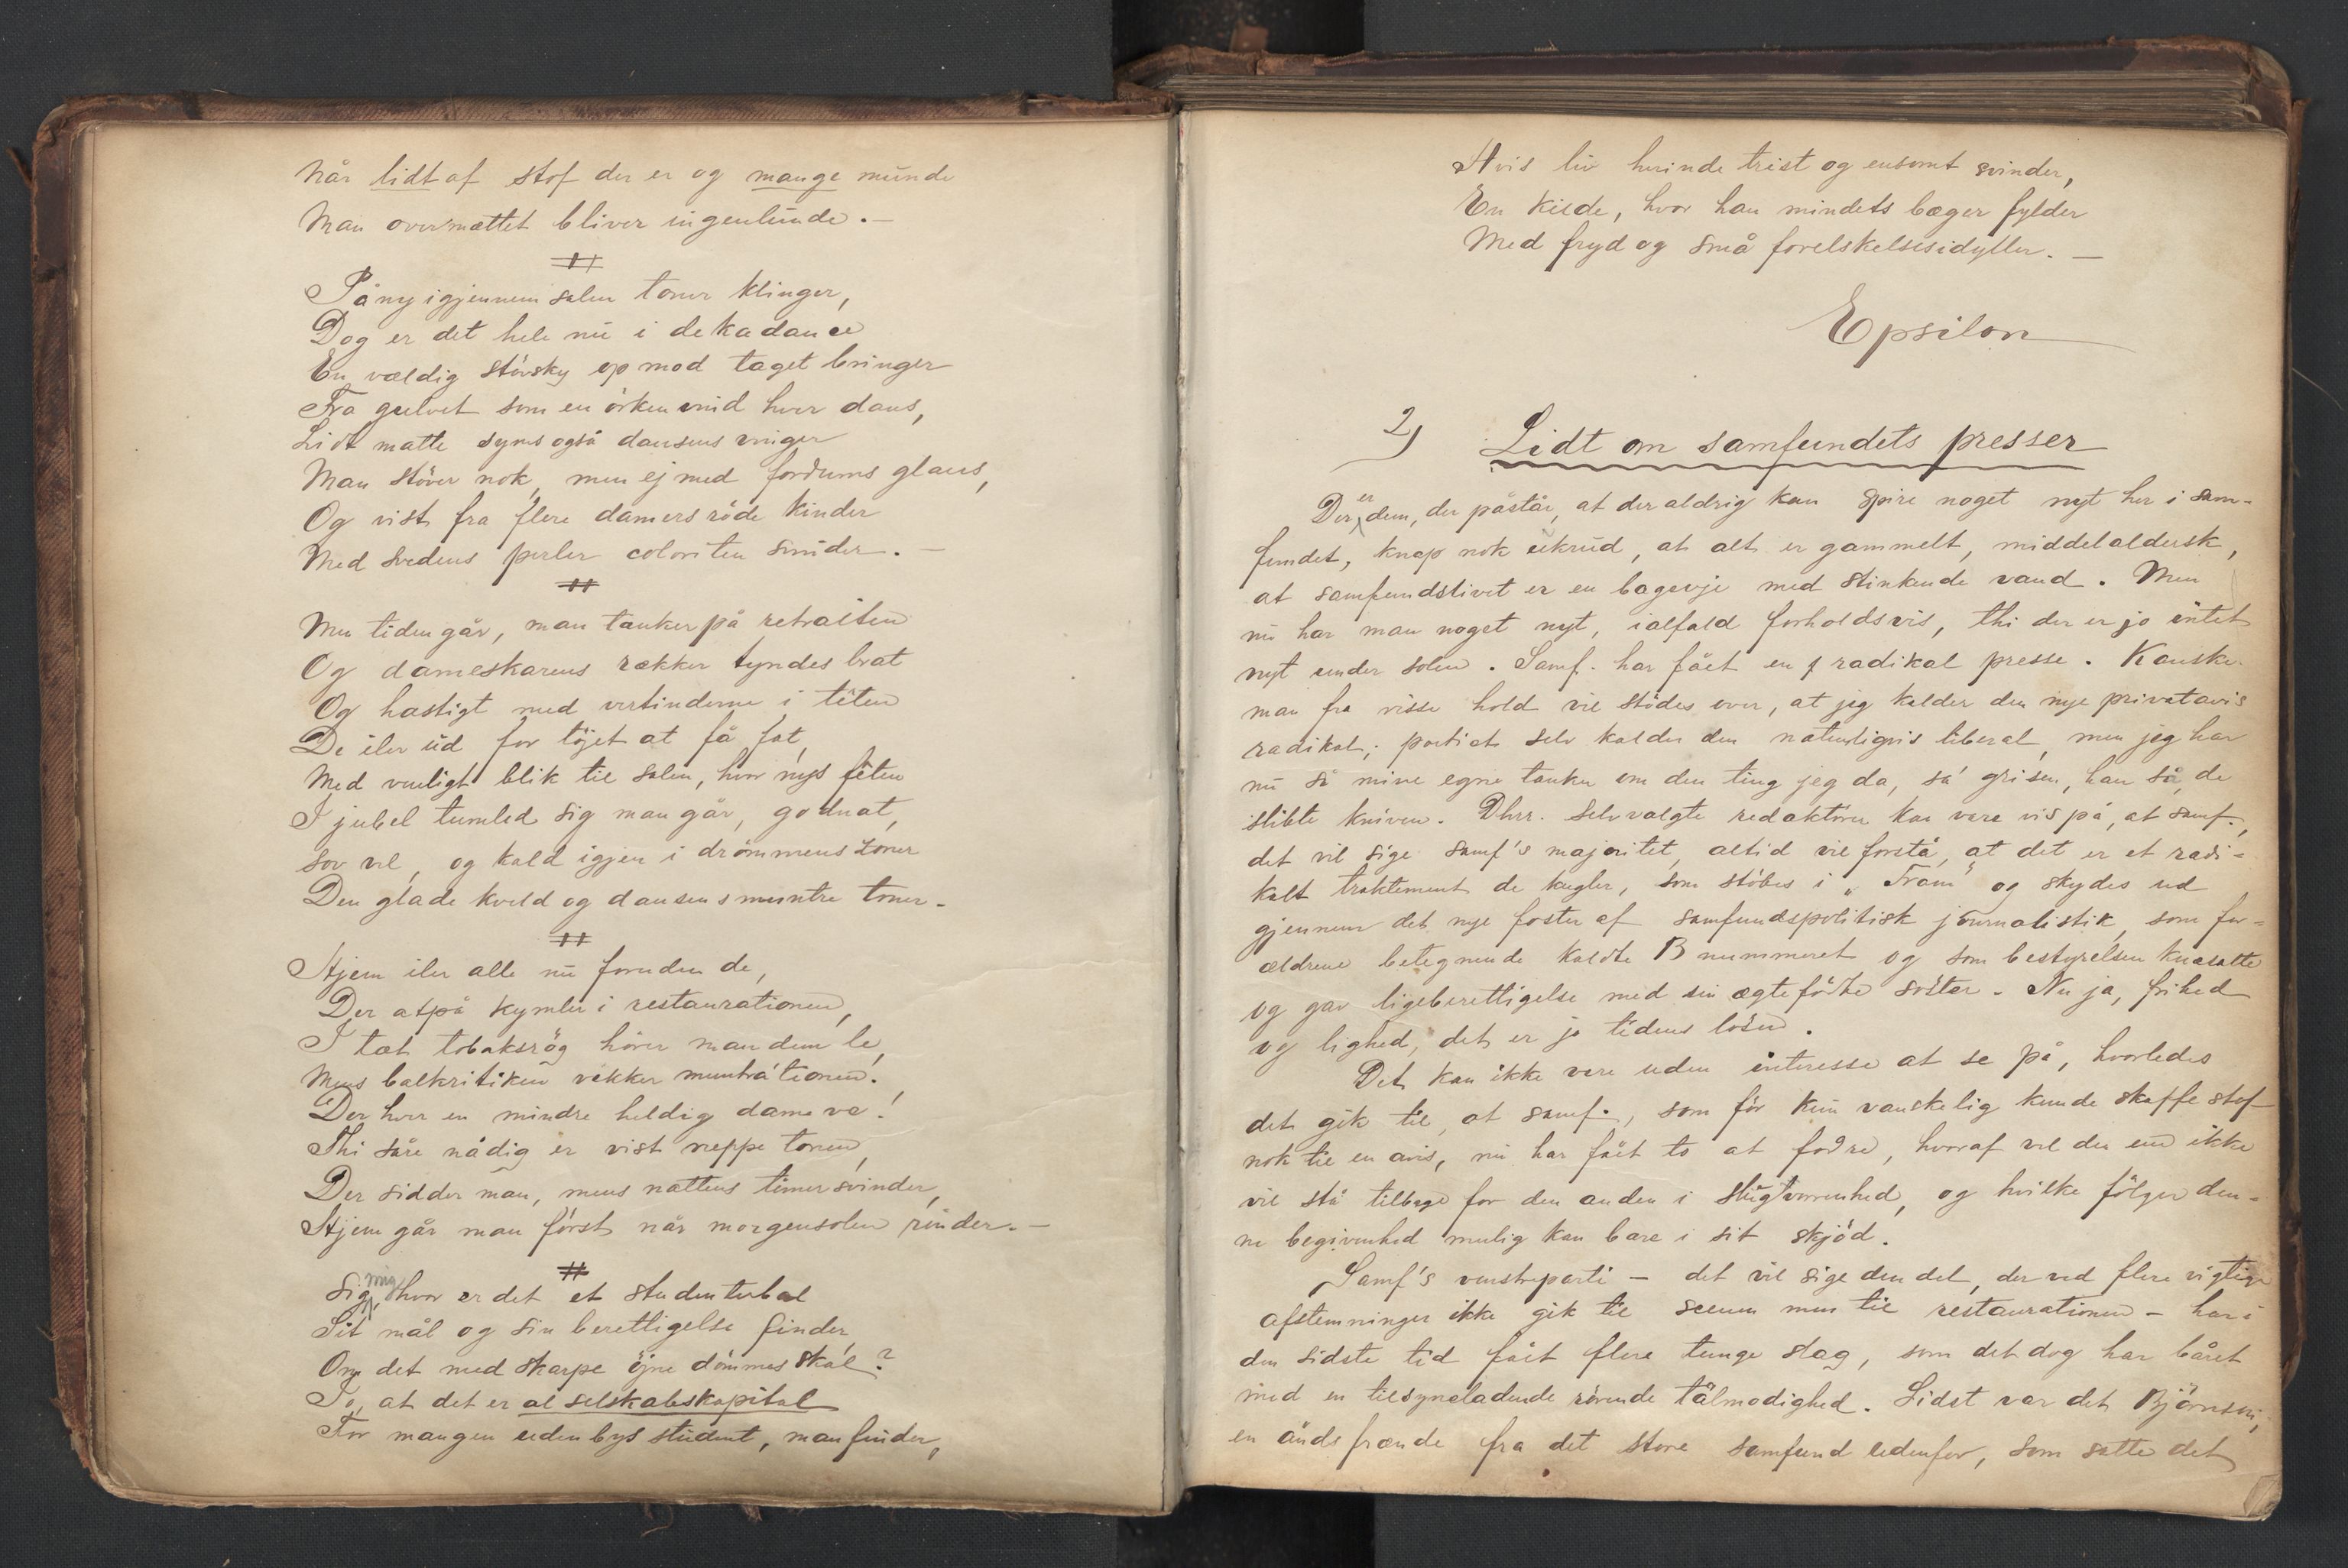 Når lidt af stof der er og mange munde
Man overmættet bliver ingenlunde. —
Påny igjennem salen toner klinger,
Dog er det hele nu i dekadance
En vældig støvsky op mod taget bringer
Fra gulvet som en ørkenvind hver dans,
Lidt matte synes også dansens vinger
Man støver nok, men ej med fordums glans,
Og vist fra flere damers røde kinder
Med svedens perler coloriten svinder. —
Men tiden går, man tænker på retraiten
Og dameskarens rækker tyndes brat
Og hastigt med vertinderne i têten
De iler ud for tøjet at få fat,
Med venligt blik til salen, hvor nys fêten
I jubel tumled sig man går, godnat,
Sov vel, og kald igjen i drømmens zoner
Den glade kveld og dansens muntre toner.
Hjem iler alle nu foruden de,
Der atpå kymler i restaurationen,
I tæt tobaksrøg hører man dem le,
Mens balkritiken vækker muntrationen.
Der hver en mindre heldig dame ve!
Thi såre nådig er vist neppe tonen,
Der sidder man, mens nattens timer svinder,
Hjem går man først når morgensolen rinder. —
Sig mig hvor er det et studenterbal
Sit mål og sin berettigelse finder,
Om det med skarpe øjne dømmes skal?
Jo, at det er al selskabskapital
For mangen udenbys student, man finder,
Hvis liv herinde trist og ensomt svinder,
En kilde, hvor han mindets bæger fylder
Med fryd og små forelskelsesidyller. —
Epsilon
2) Lidt om samfundets presser
Der er dem, der påstår, at der aldrig kan spire noget nyt her i sam-
fundet, knap nok ukrud, at alt er gammelt, middelaldersk,
at samfundslivet er en bagevje med stinkende vand. Men
nu har man noget nyt, ialfald forholdsvis, thi der er jo intet
nyt under solen. Samf. har fået en radikal presse. Kanske
man fra visse hold vil stødes over, at jeg kalder den nye privatavis
radikal; partiet selv kalder den naturligvis liberal, men jeg har
nu så mine egne tanker om den ting jeg da, sa' grisen, han så, de
slibte kniven. Dhrr. selvvalgte redaktører kan være vis på, at samf.,
det vil sige samf's majoritet, altid vil forstå, at det er et radi-
kalt traktement de kugler, som støbes i „Fram" og skydes ud
gjennem det nye foster af samfundspolitisk journalistik, som for-
ældrene betegnende kaldte B nummeret og som bestyrelsen knæsatte
og gav ligeberettigelse med sin ægtefødte søster. Nu ja, frihed
og lighed, det er jo tidens løsen.
Det kan ikke være uden interesse at se på, hvorledes
det gik til, at samf., som før kun vanskelig kunde skaffe stof
nok til en avis, nu har fået to at fodre, hvoraf vel den ene ikke
vil stå tilbage for den anden i slugvorrenhed, og hvilke følger den-
ne begivenhed mulig kan bære i sit skjød.
Samf's venstreparti — det vil sige den del, der ved flere vigtige
afstemninger ikke gik til scenen men til restaurationen — har i
den sidste tid fået flere tunge slag, som det dog har båret
med en tilsyneladende rørende tålmodighed. Sidst var det Bjørnson,
en åndsfrænde fra det store samfund udenfor, som satte det